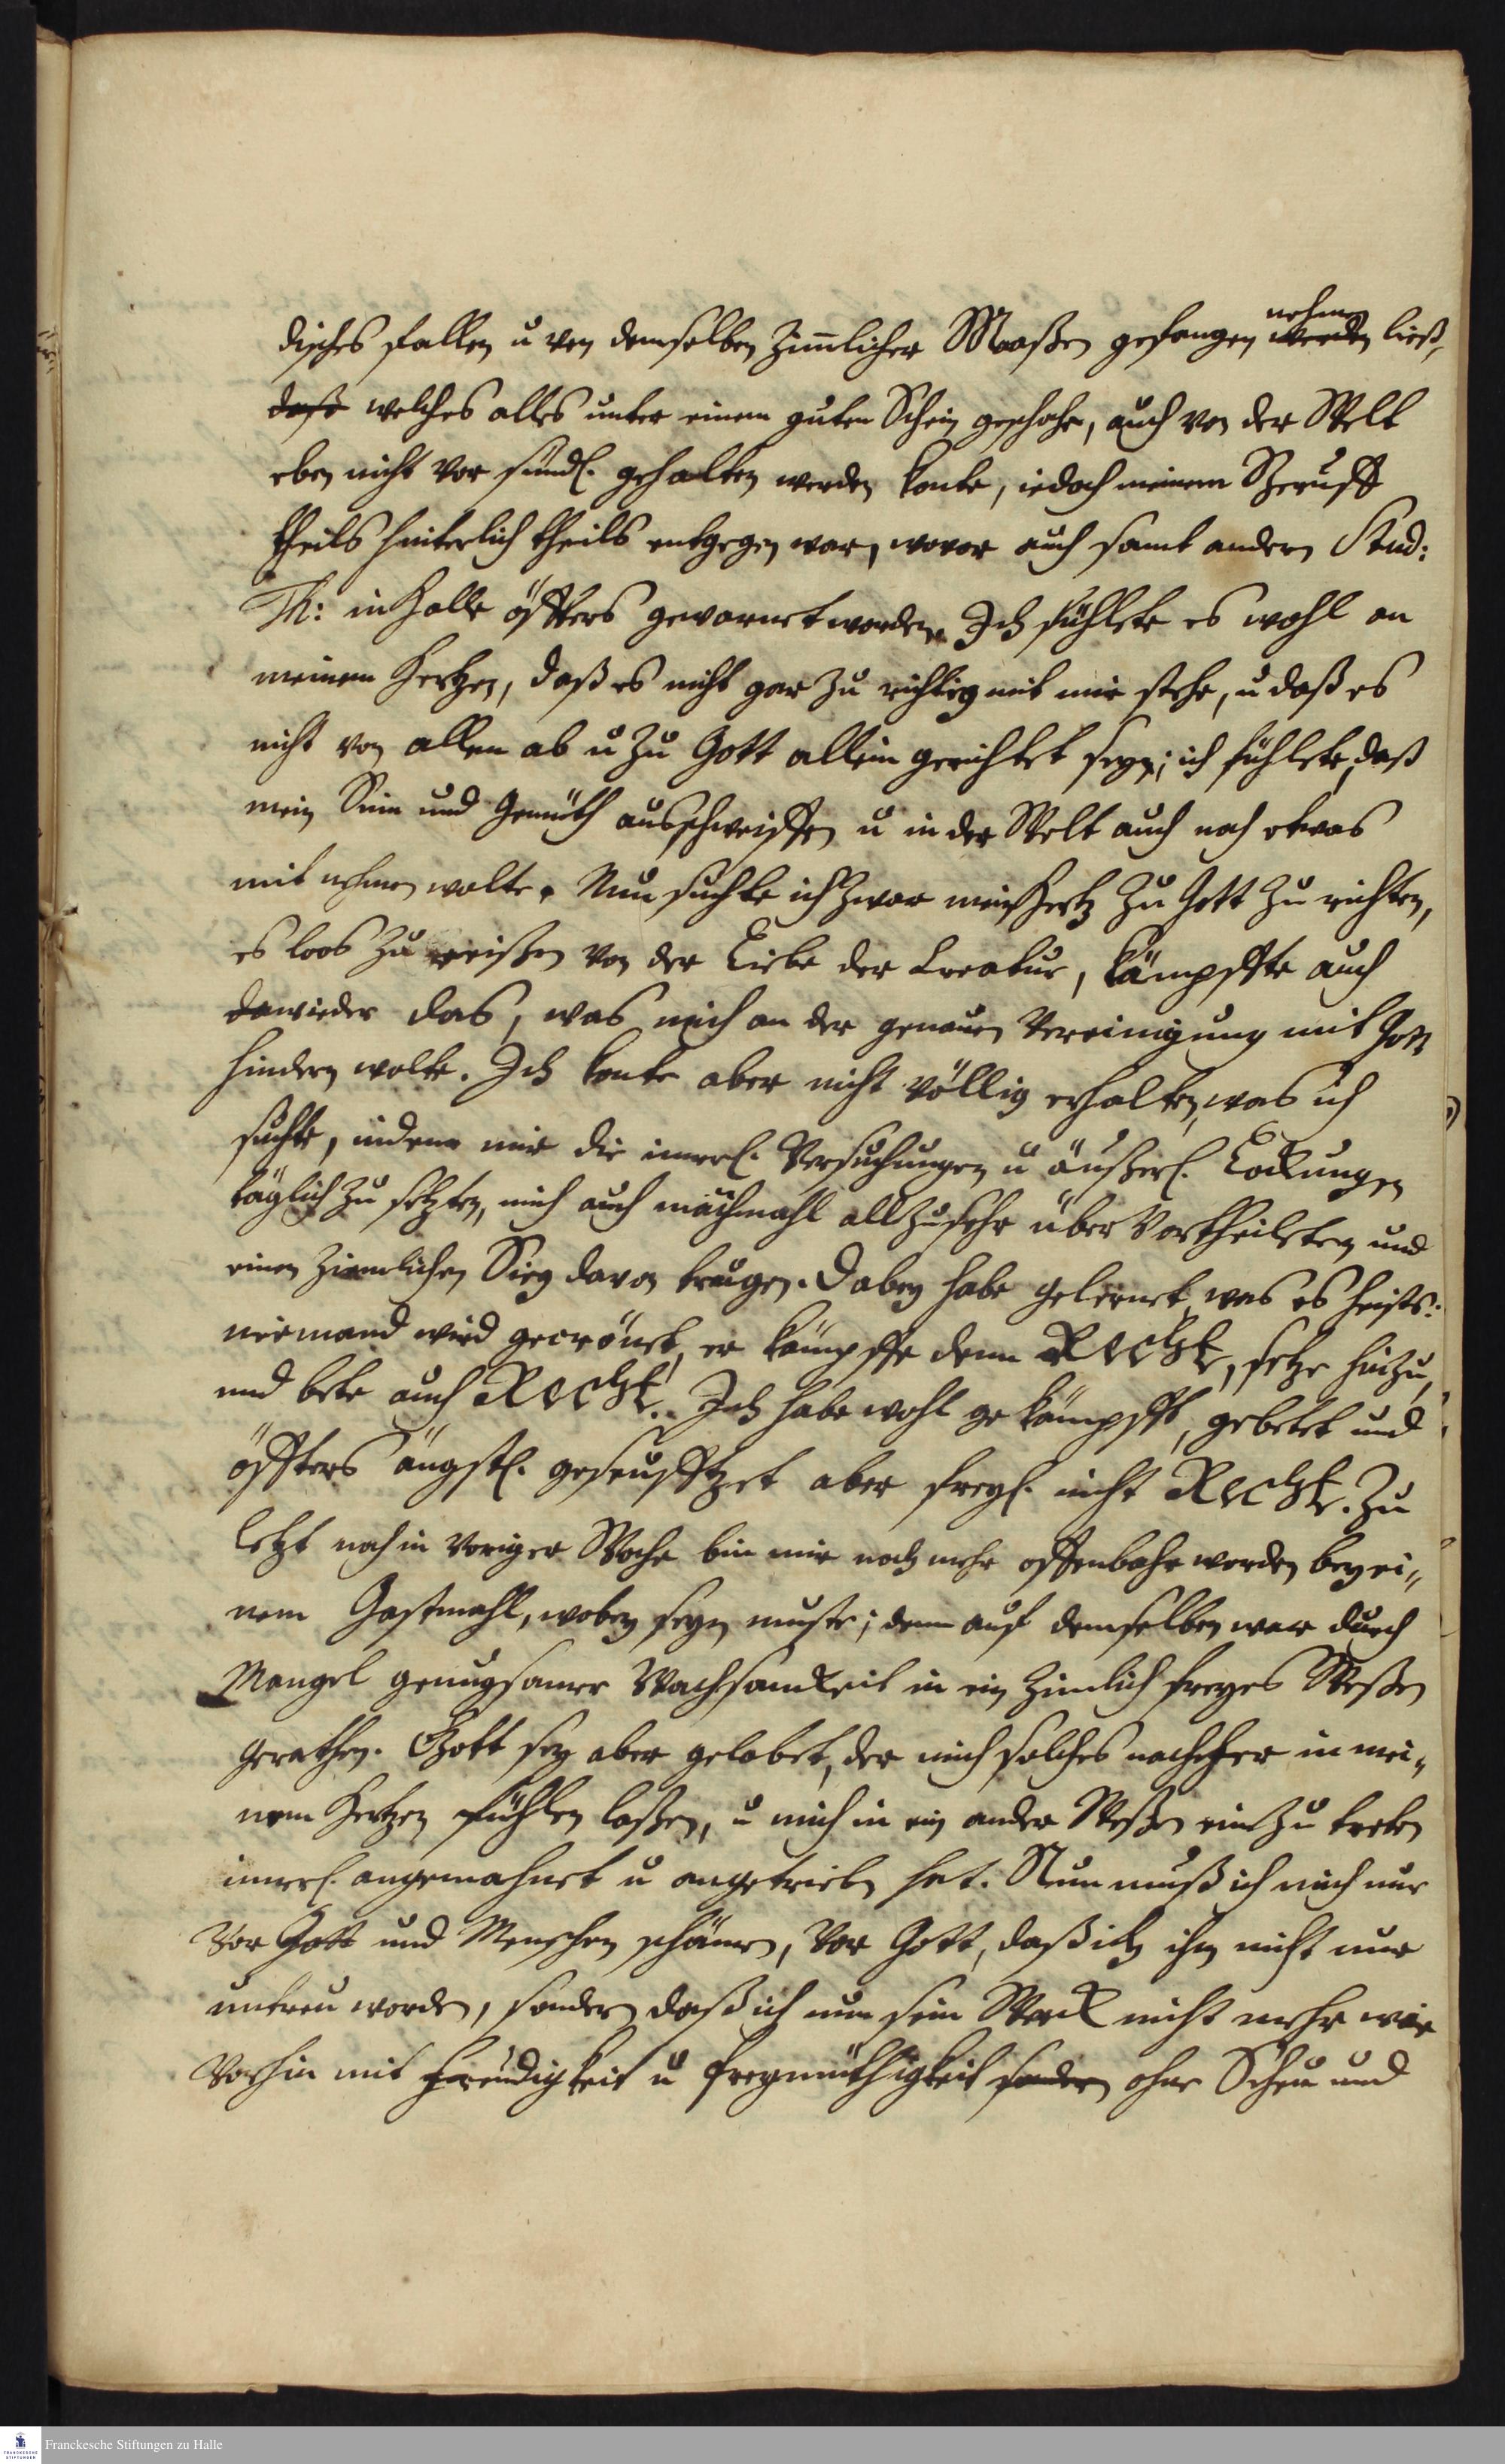 disches fallen u von demselben zimlicher Maaßen gefangen nehmen werden ließ,
daß welches alles unter einem guten Schein geschahe, auch von der Welt
eben nicht vor sündl. gehalten werden konte, iedoch meinem Beruff
theils hinterlich theils entgegen war, wovor auch samt andern Stud:
Th: in Halle öffters gewarnet worden. Ich fühlete es wohl an
meinem Hertzen, daß es nicht gar zu richtig mit mir stehe, u daß es
nicht von allem ab u zu Gott allein gerichtet sey; ich fühlete, daß
mein Sinn und Gemüth ausschweiffen u in der Welt auch noch etwas
mit nehmen wolte. Nun suchte ich zwar mein Hertz zu Gott zu richten,
es loos zu reißen von der Liebe der Creatur, kämpffte auch
dawieder das, was mich an der genauen Vereinigung mit Gott
hindern wolte. Ich konte aber nicht völlig erhalten, was ich
suchte, indem mir die innerl. Versuchungen u äußerl. Lockungen
täglich zu setzten, mich auch manchmahl allzusehr übervortheileten und
einen ziemlichen Sieg davon trugen. Dabey habe gelernet was es heists:
niemand wird gecrönet, er kämpffe denn Recht, setze hinzu,
und bete auch Recht. Ich habe wohl gekämpfft, gebetet und
öffters ängstl. geseuffzet aber freyl. nicht Recht. Zu
letzt noch in voriger Woche bin mir noch mehr offenbahr worden bey ei„
nem Gastmahl, wobey seyn muste; denn auf demselben war durch
Mangel genugsamer Wachsamkeit in ein zimlich freyes Weßen
gerathen. Gott sey aber gelobet, der mich solches nachher in mei„
nem Hertzen fühlen laßen, u mich in ein ander Weßen ein zu treten
innerl. angemahnet u angetrieben hat. Nun muß ich mich nur
vor Gott und Menschen schämen, vor Gott, daß ich ihm nicht nur
untreu worden, sondern daß ich nun sein Werck nicht mehr wie
vorhin mit Freudigkeit u Freymüthigkeit sondern ohne Scheu und
Franckesche Stiftungen zu Halle